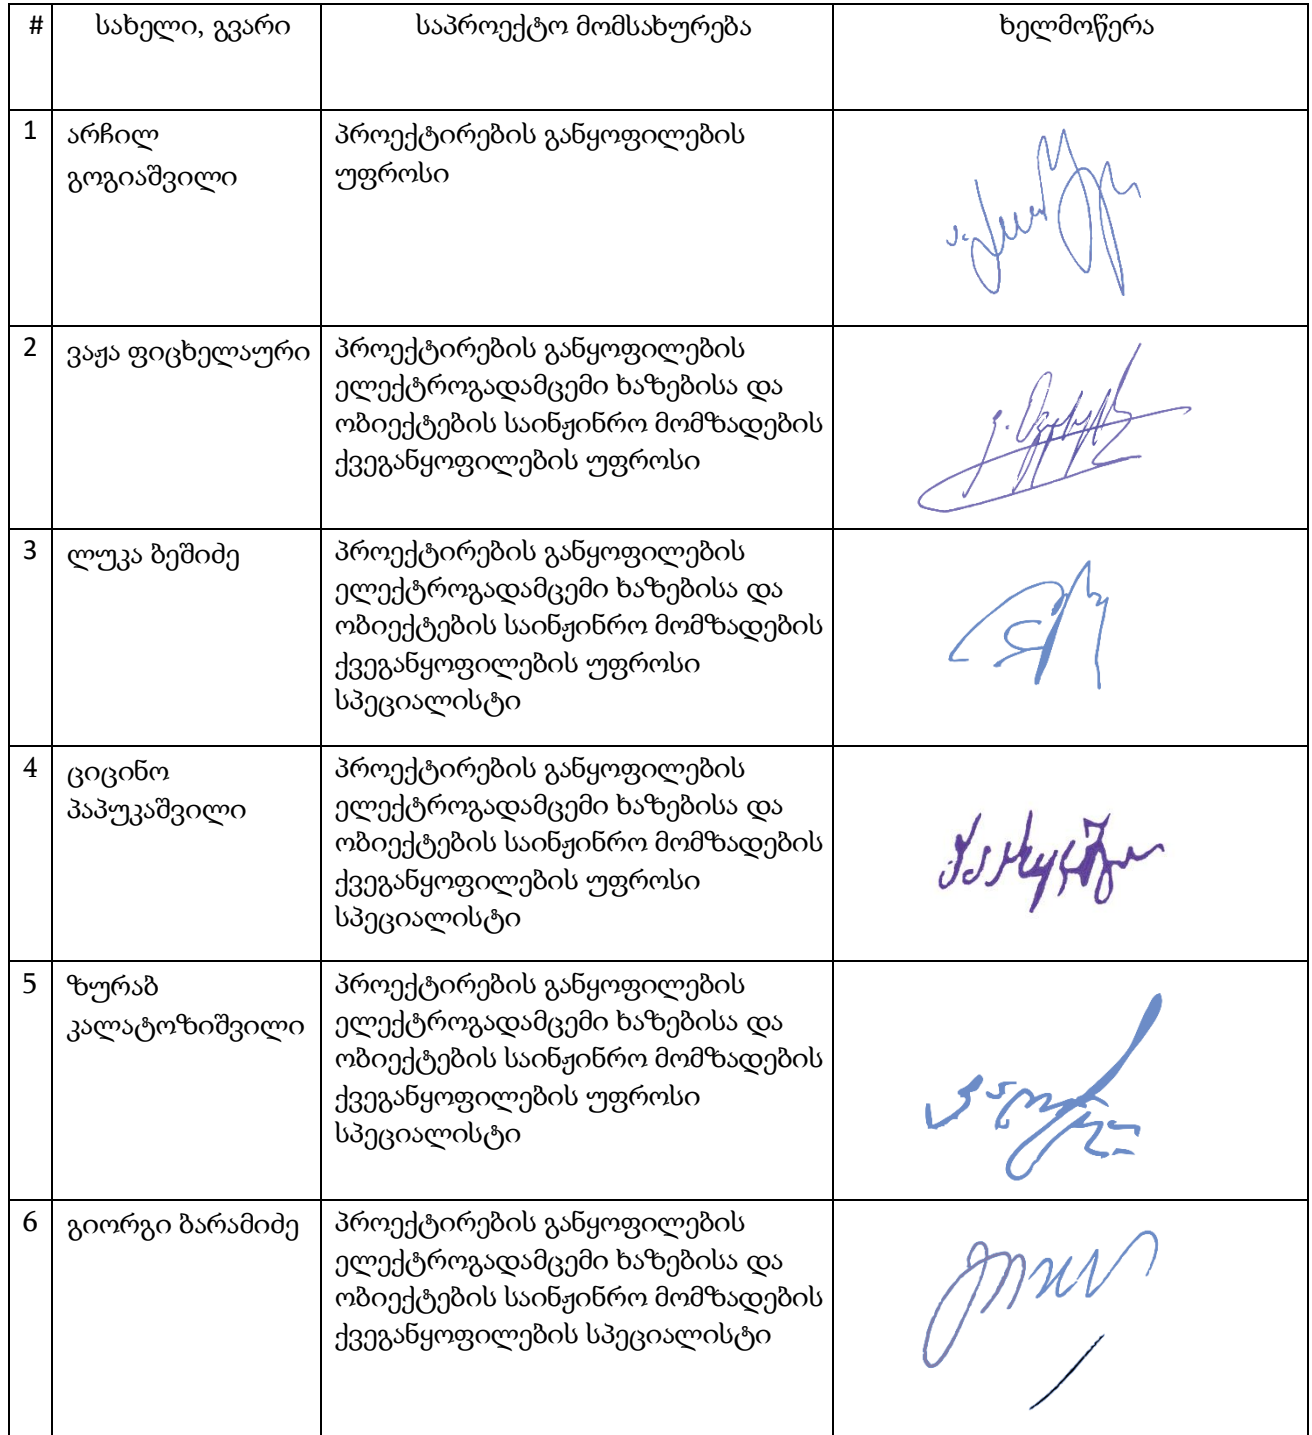 # სახელი, გვარი საპროექტო მომსახურება ხელმოწერა
1 არჩილ პროექტირების განყოფილების
გოგიაშვილი უფროსი
2 ვაჟა ფიცხელაური პროექტირების განყოფილების
ელექტროგადამცემი ხაზებისა და
ობიექტების საინჟინრო მომზადების
ქვეგანყოფილების უფროსი
3 ლუკა ბეშიძე პროექტირების განყოფილების
ელექტროგადამცემი ხაზებისა და
ობიექტების საინჟინრო მომზადების
ქვეგანყოფილების უფროსი
სპეციალისტი
4 ციცინო პროექტირების განყოფილების
პაპუკაშვილი ელექტროგადამცემი ხაზებისა და
ობიექტების საინჟინრო მომზადების
ქვეგანყოფილების უფროსი
სპეციალისტი
5 ზურაბ პროექტირების განყოფილების
კალატოზიშვილი ელექტროგადამცემი ხაზებისა და
ობიექტების საინჟინრო მომზადების
ქვეგანყოფილების უფროსი
სპეციალისტი
6 გიორგი ბარამიძე პროექტირების განყოფილების
ელექტროგადამცემი ხაზებისა და
ობიექტების საინჟინრო მომზადების
ქვეგანყოფილების სპეციალისტი